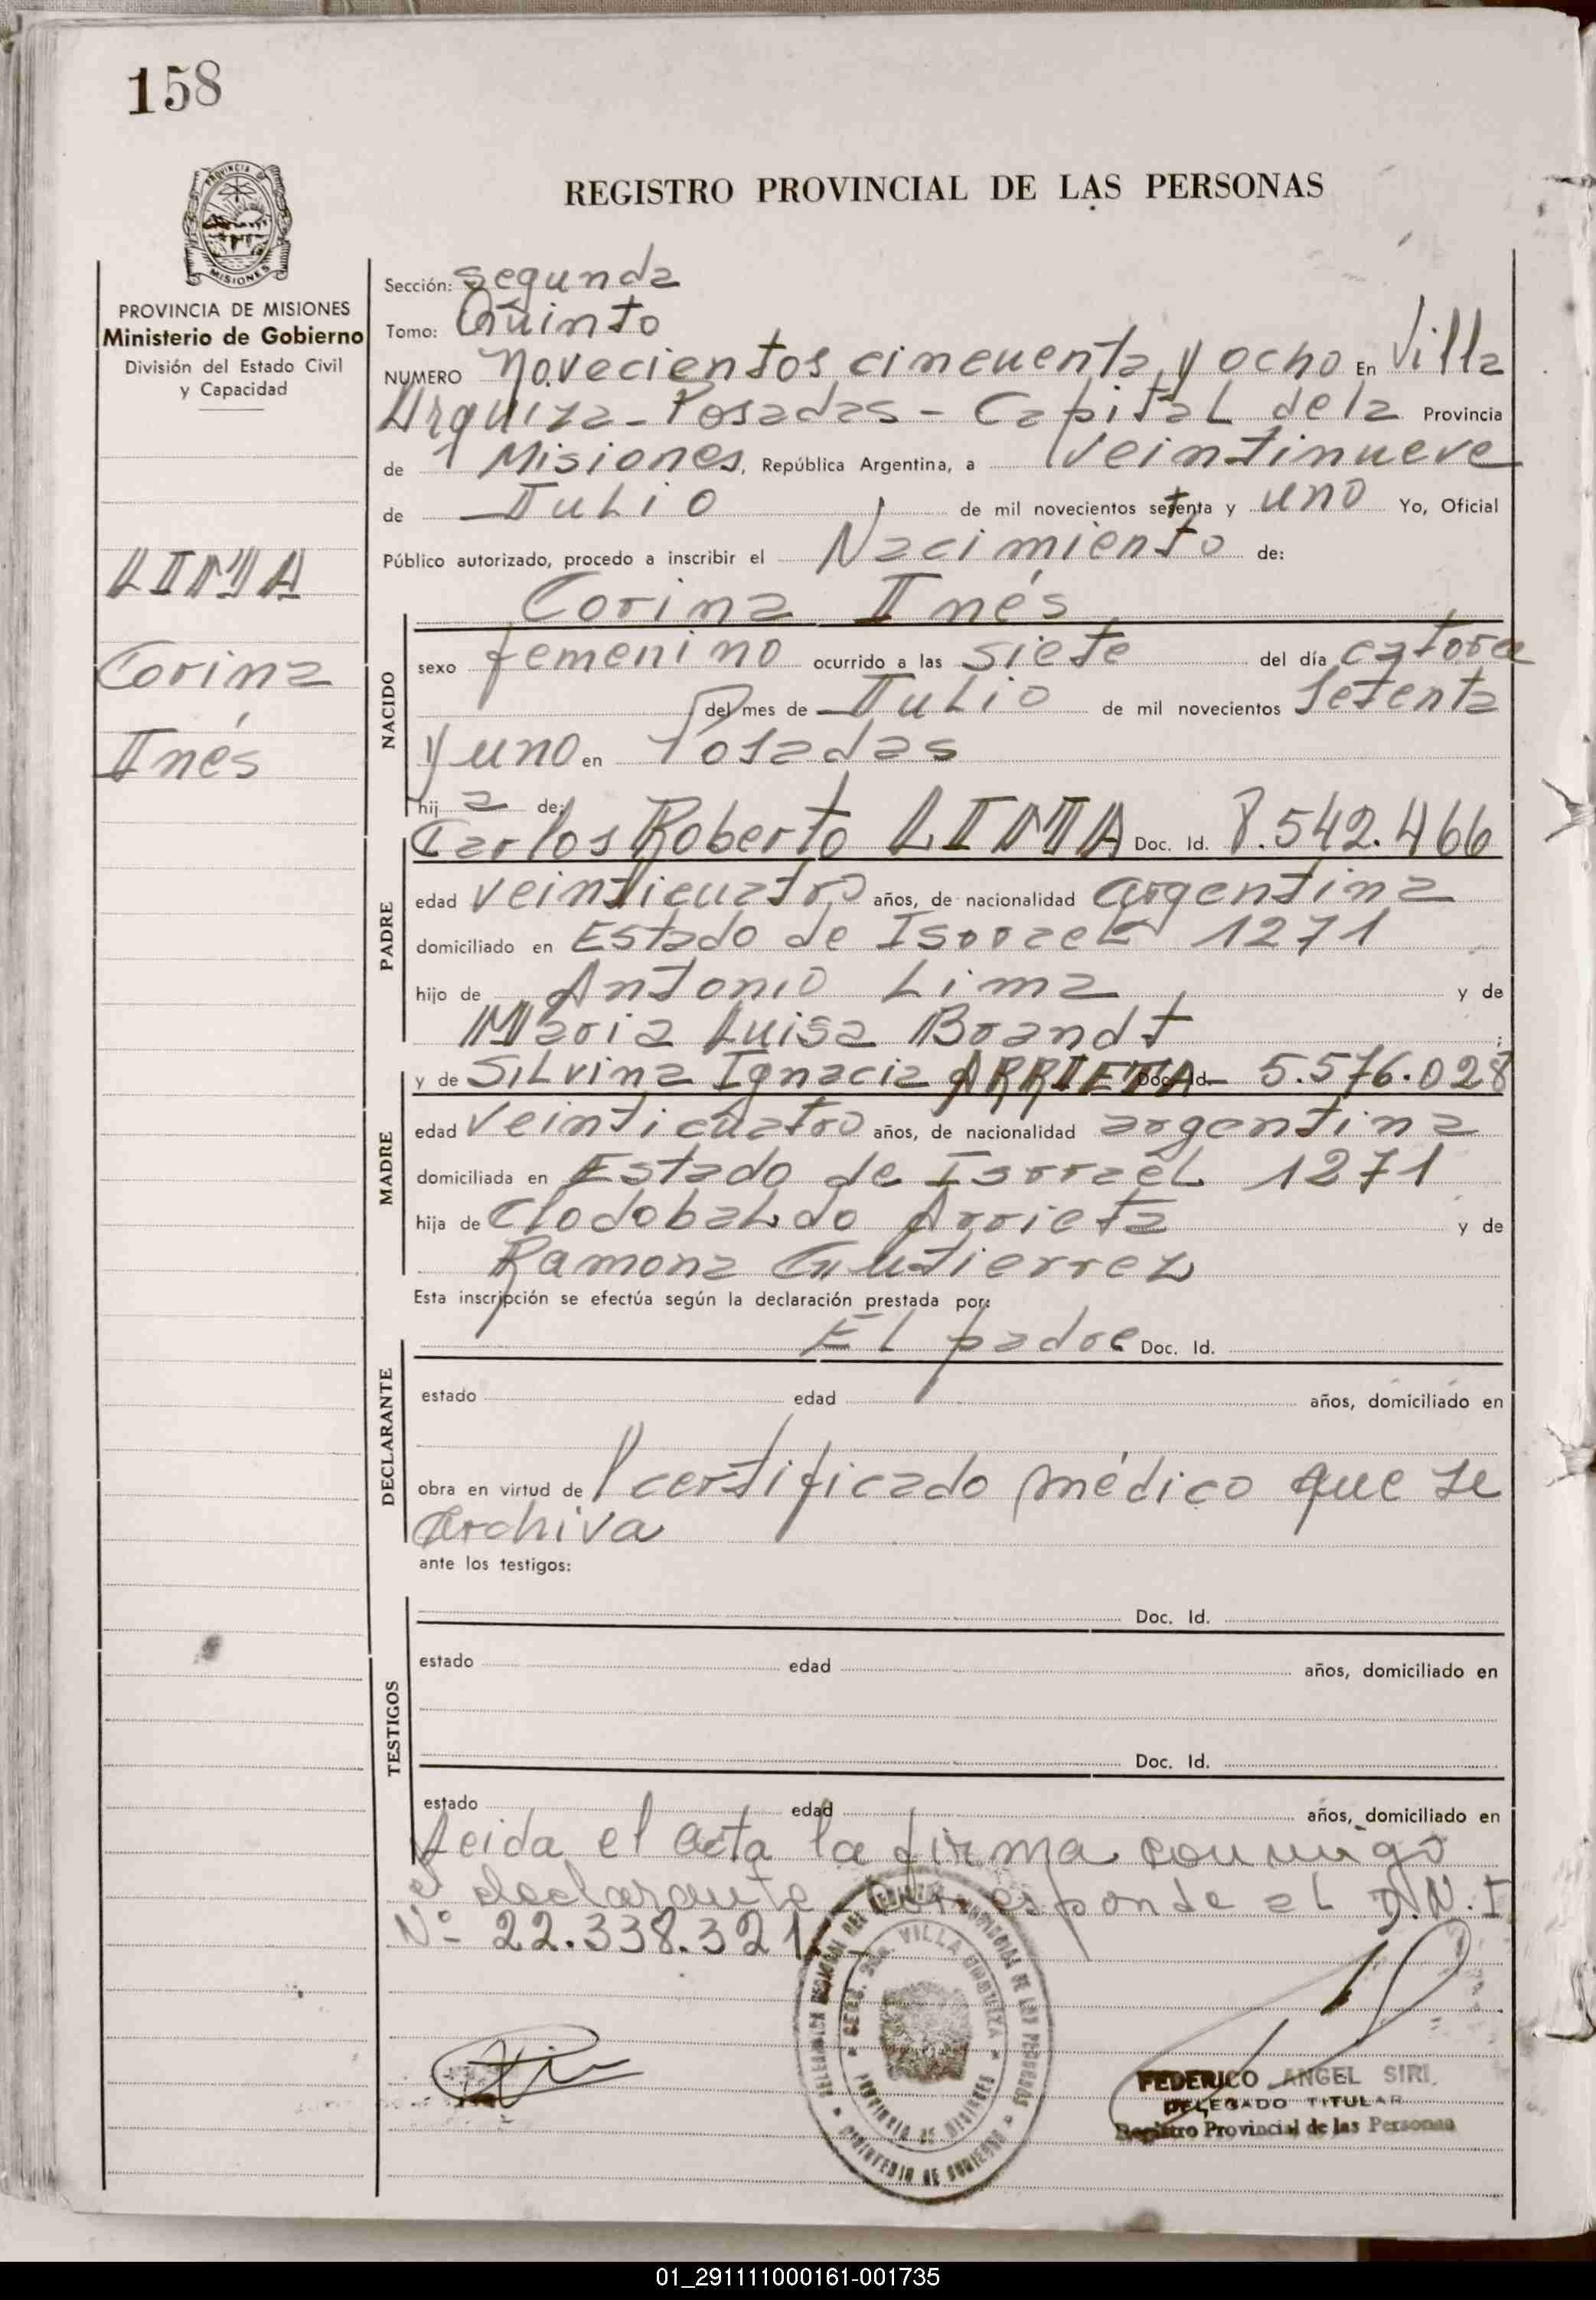 158
PROVINCIA DE MISIONES
PROVINCIA DE MISIONES
Ministerio de Gobierno
División del Estado Civil
y Capacidad
LIMA
Corina
Inés
REGISTRO PROVINCIAL DE LAS PERSONAS
Sección: Segunda
Tomo: Quinto
NUMERO Novecientos cincuenta y ocho En Villa
Urquiza - Posadas - Capital de la Provincia
de Misiones, República Argentina, a veintinueve
de Julio de mil novecientos setenta y uno Yo, Oficial
Público autorizado, procedo a inscribir el Nacimiento de:
Corina Inés
NACIDO
sexo femenino ocurrido a las siete del día catorce
del mes de Julio de mil novecientos setenta
y uno en Posadas
hij a de:
Carlos Roberto LIMA Doc. Id. 8.542.466
PADRE
edad veinticuatro años, de nacionalidad argentina
domiciliado en Estado de Isrrael 1271
hijo de Antonio Lima y de
Maria Luisa Brandt ;
y de Silvina Ignacia ARRIETA Doc. Id. 5.576.028
MADRE
edad veinticuatro años, de nacionalidad argentina
domiciliada en Estado de Isrrael 1271
hija de Clodobaldo Arrieta y de
Ramona Gutierrez
Esta inscripción se efectúa según la declaración prestada por:
El padre Doc. Id.
DECLARANTE
estado edad años, domiciliado en
obra en virtud de l certificado médico que se
archiva
ante los testigos:
Doc. Id.
TESTIGOS
estado edad años, domiciliado en
Doc. Id.
estado edad años, domiciliado en
Leida el acta la firma conmigo
el declarante. Corresponde al D.N.I
Nº 22.338.321
SECC. 2da. VILLA URQUIZA
PROVINCIA DE MISIONES
MINISTERIO DE GOBIERNO
FEDERICO ANGEL SIRI
DELEGADO TITULAR
Registro Provincial de las Personas
01_291111000161-001735